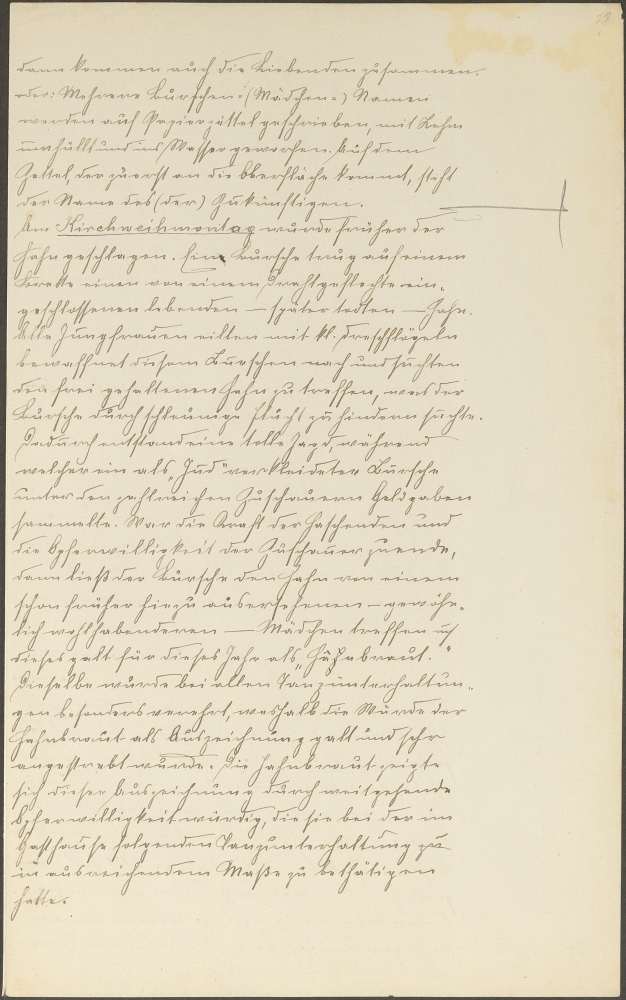 dann kommen auch die Liebenden zusammen.
oder: Mehrere Burschen-(Mädchen-) Namen
werden auf Papierzettel geschrieben, mit Lehm
umhüllt und ins Wasser geworfen. Auf dem
Zettel, der zuerst an die Oberfläche kommt, steht
der Name des (der) Zukünftigen.
Am Kirchweihmontag wurde früher der
Hahn geschlagen. Ein Bursche trug auf einem
Brette einen von einem Drahtgeflechte ein-
geschlossenen lebenden — später todten — Hahn.
Alle Jungfrauen eilten mit kl. Dreschflögeln
bewaffnet diesem Burschen nach und suchten
den frei gehaltenen Hahn zu treffen, was der
Bursche durch schleunige Flucht zu hindern suchte.
Dadurch entstand eine tolle Jagd, während
welcher ein als „Jud" verkleideter Bursche
unter den zahlreichen Zuschauern Geldgaben
sammelte. War die Kraft der Haschenden und
die Opferwilligkeit der Zuschauer zuende,
dann ließ der Bursche den Hahn von einem
schon früher hiezu ausersehenen – gewöhn-
lich wohlhabenderen — Mädchen treffen u.
dieses galt für dieses Jahr als „Hahnbraut."
Dieselbe wurde bei allen Tanzunterhaltun-
gen besonders verehrt, weshalb die Würde der
Hahnbraut als Auszeichnung galt und sehr
angestrebt wurde. Die Hahnbraut zeigte
sich dieser Auszeichnung durch weitgehende
Opferwilligkeit würdig, die sie bei der im
Gasthause folgenden Tanzunterhaltung zu
in ausreichendem Maße zu bethätigen
hatte.